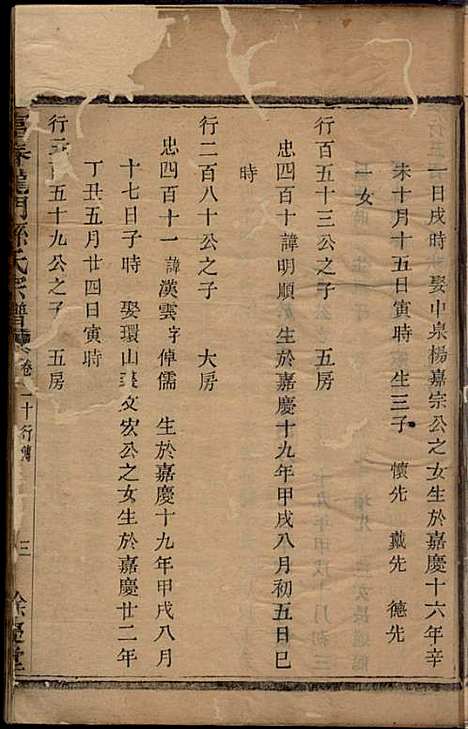 一日戌時 娶中泉楊嘉宗公之女生於嘉慶十六年辛
未十月十五日寅時 生三子 懷先 戴先 德先
一女
行百五十三公之子 五房
忠四百十諱明順 生於嘉慶十九年甲戌八月初五日巳
時
行二百八十公之子 大房
忠四百十一諱漢雲字倬儒 生於嘉慶十九年甲戌八月
十七日子時 娶環山裘文宏公之女生於嘉慶廿二年
丁丑五月廿四日寅時
行 五十九公之子 五房
富春龍門孫氏宗譜 卷二十行傳 三 餘慶堂